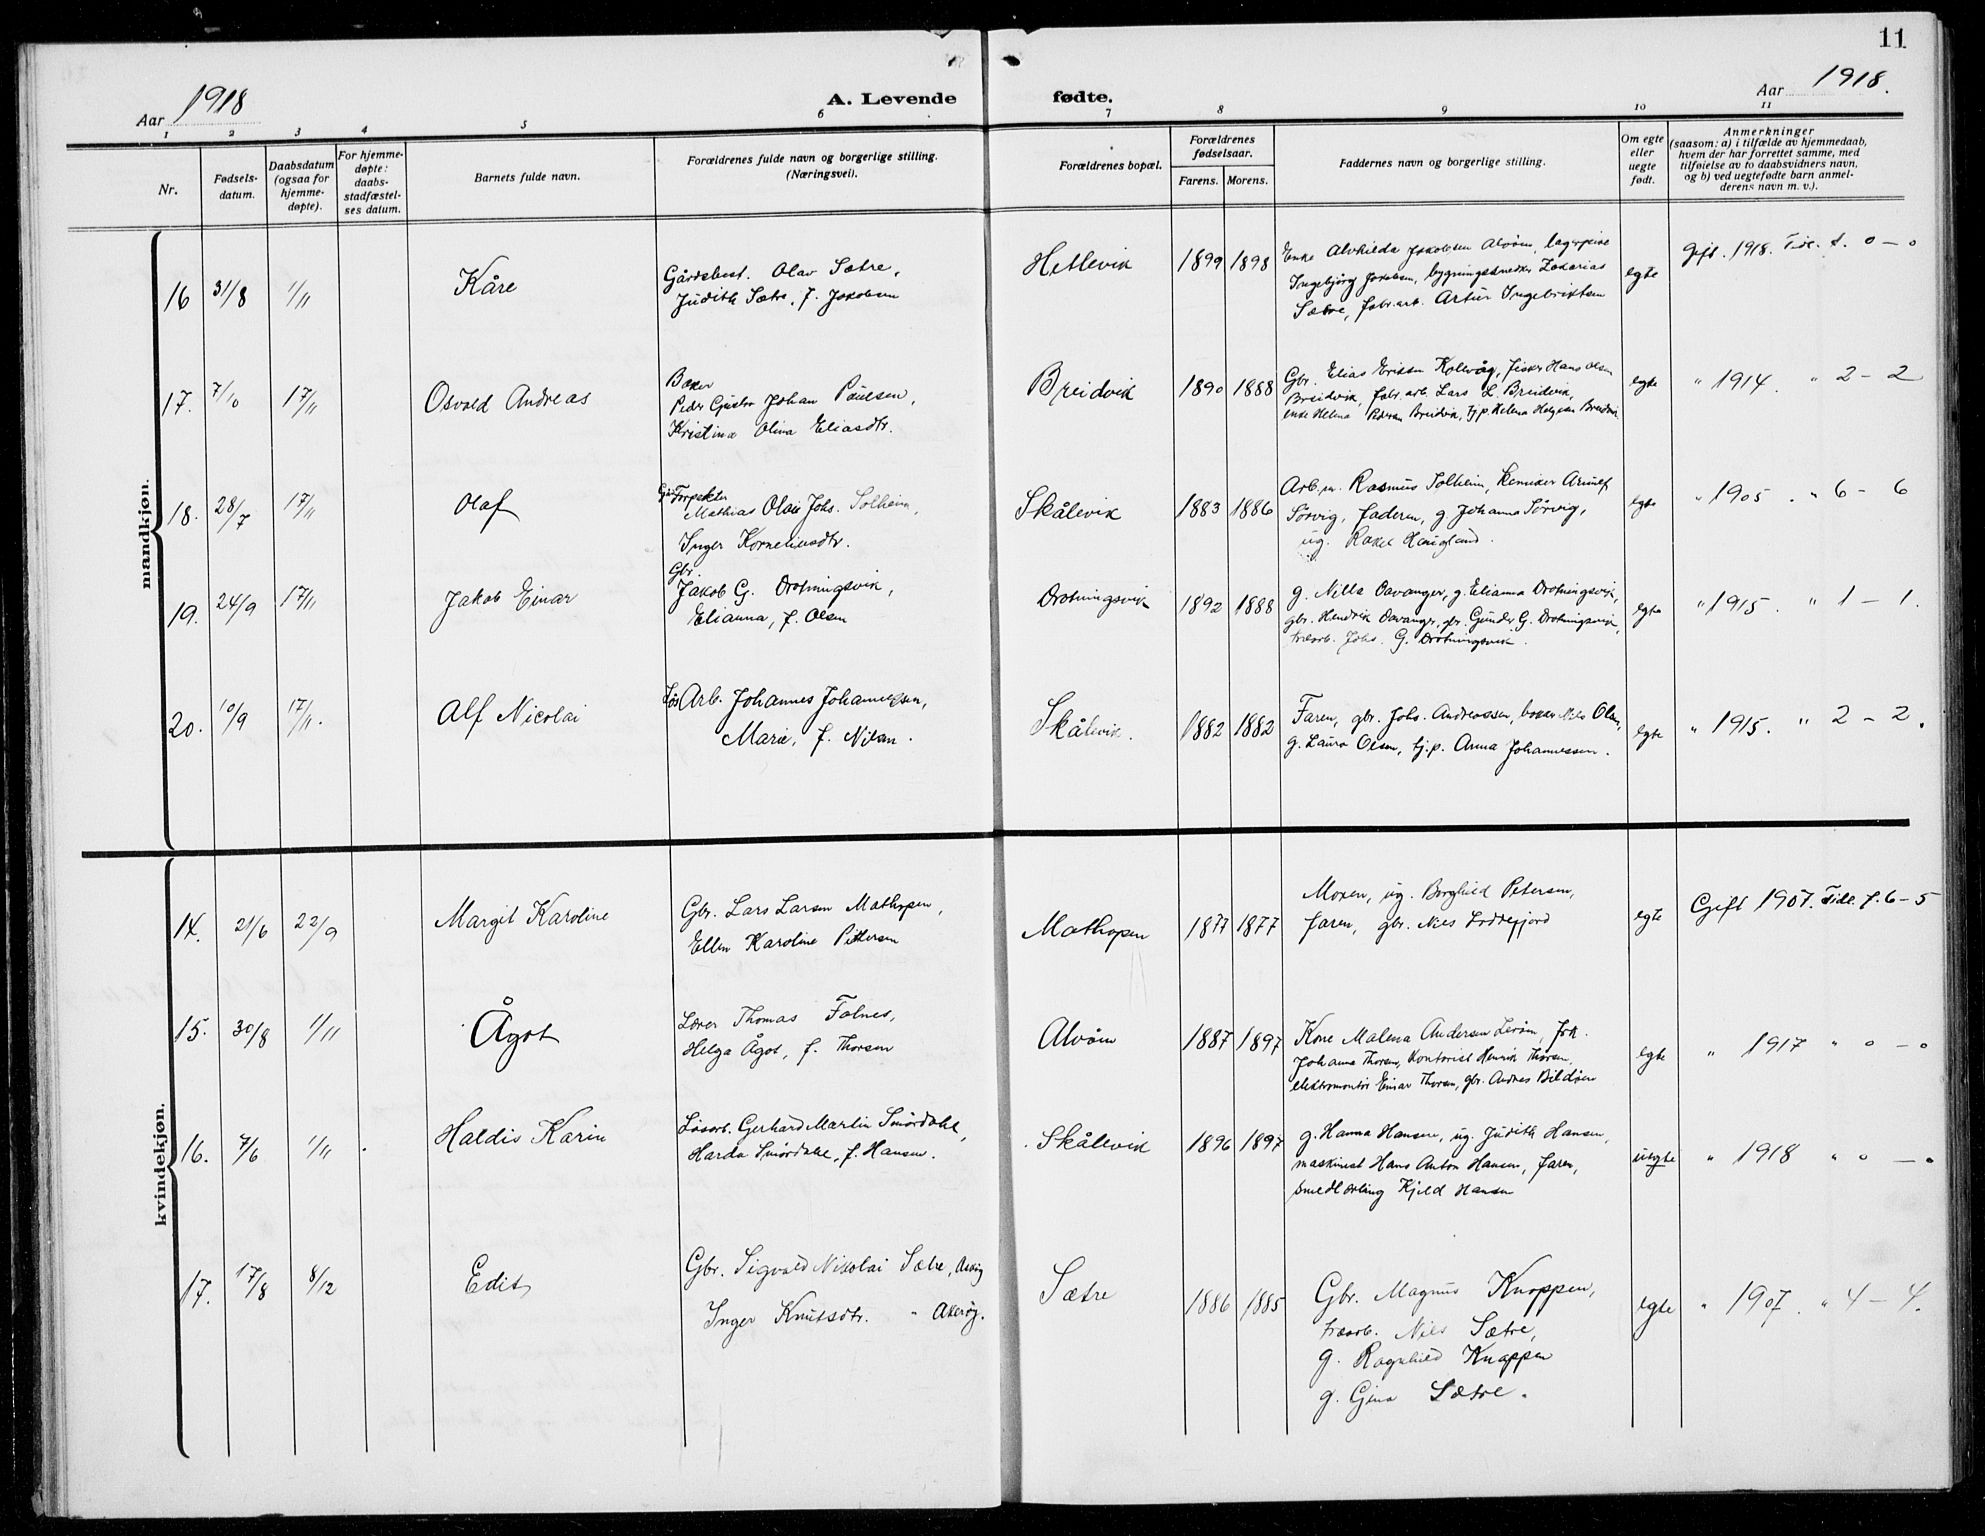 11
Aar 1918
A. Levende fødte.
Aar 1918.
1 2 3 4 5 6 7 8 9 10 11
Nr.
Fødsels-
datum.
Daabsdatum
(ogsaa for
hjemme-
døpte).
For hjemme-
døpte:
daabs-
stadfæstel-
ses datum.
Barnets fulde navn.
Forældrenes fulde navn og borgerlige stilling.
(Næringsvei).
Forældrenes bopæl.
Forældrenes
fødselsaar.
Farens. Morens.
Faddernes navn og borgerlige stilling.
Om egte
eller
uegte
født.
Anmerkninger
(saasom: a) i tilfælde av hjemmedaab,
hvem der har forrettet samme, med
tilføielse av to daabsvidners navn,
og b) ved uegtefødte barn anmel-
derens navn m. v.).
mandkjøn.
16 31/8 1/11 Kåre
Gårdsbest. Olav Sætre,
Judith Sætre, f. Jakobsen
Hetlevik 1899 1898
Enke Alvhilda Jakobsen Alvøen,
Ingebjörg Jakobsen, bygningssnedker Zakarias
Sætre, fabr.arb. Artur Ingebriktsen
egte
Gift. 1918. Tidl. f. 0 – 0
17. 7/10 17/11 Osvald Andreas
Baker
Peder Gustav Johan Paulsen,
Kristine Olina Eliasdtr.
Breidvik 1890 1888
Gbr. Elias Erissen Kolevåg, fisker Hans Olsen
Breidvik, fabr.arb. Lars L. Breidvik,
enke Helena Pedersen Breidvik, tj.p. Helena Helgesen Breidvik
egte
" 1914. " 2 – 2
18. 28/7 17/11 Olaf
Mathias Olai Johs. Solheim,
Inger Korneliusdtr.
Skålevik 1883 1886
Arb.m. Rasmus Solheim, kemiker Arnulf
Sörvig, faderen, g. Johanna Sörvig,
ug. Rakel Haugland.
egte
" 1905. " 6 – 6
19. 24/9 17/11 Jakob Einar
Gbr.
Jakob G. Drotningsvik,
Elianna, f. Olsen
Drotningsvik 1892 1888
g. Nilla Davanger, g. Elianna Drotningsvik,
gbr. Hendrik Davanger, gbr. Gunder G. Drotningsvik,
træarb. Johs. G. Drotningsvik.
egte
" 1915. " 1 – 1.
20. 10/9 17/11. Alf Nicolai
Løs Arb. Johannes Johannessen,
Marie, f. Nilsen.
Skålevik. 1882 1882
Faren, gbr. Johs. Andreassen, baker Nils Olsen,
g. Laura Olsen, tj.p. Anna Johannessen.
egte
" 1915. " 2 – 2.
kvindekjøn.
14. 21/6 22/9 Margit Karoline
Gbr. Lars Larsen Mathopen,
Ellen Karoline Pettersen
Mathopen 1877 1877
Moren, ug. Borghild Petersen,
faren, gbr. Nils Loddefjord
egte
Gift 1907. Tidl. f. 6 – 5
15. 30/8 1/11 Ågot
Lærer Thomas Falnes,
Helga Ågot, f. Thorsen
Alvøen 1887 1897
Kone Malena Andersen Lerøen, frk.
Johanna Thorsen, kontorist Henrik Thorsen,
elektromontør Einar Thorsen, gbr. Andreas Bildøen
egte
" 1917 " 0 – 0
16. 7/6 1/11 Haldis Karin
Løsarb. Gerhard Martin Smördahl,
Harda Smördahl, f. Hansen.
Skålevik 1896 1897
g. Hanna Hansen, ug. Judith Hansen,
maskinist Hans Anton Hansen, faren,
smedlærling Kjeld Hansen
uegte
" 1918 " 0 – 0
17. 17/8 8/12 Edit
Gbr. Sigvald Nikolai Sætre,
Inger Knutsdtr. " Askøy.
Sætre 1886 1885
Gbr. Magnus Knappen,
træarb. Nils Sætre,
g. Ragnhild Knappen
g. Gjena Sætre.
egte
" 1907. " 4 – 4.